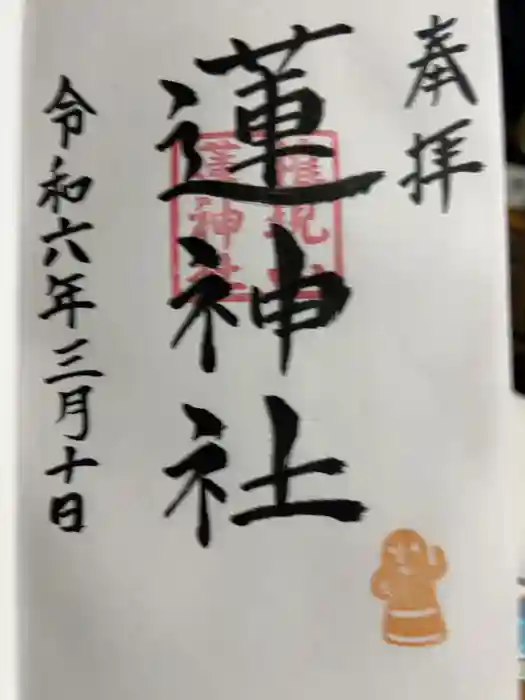 奉拝
蓮神社
令和六年三月十日
蓮神社